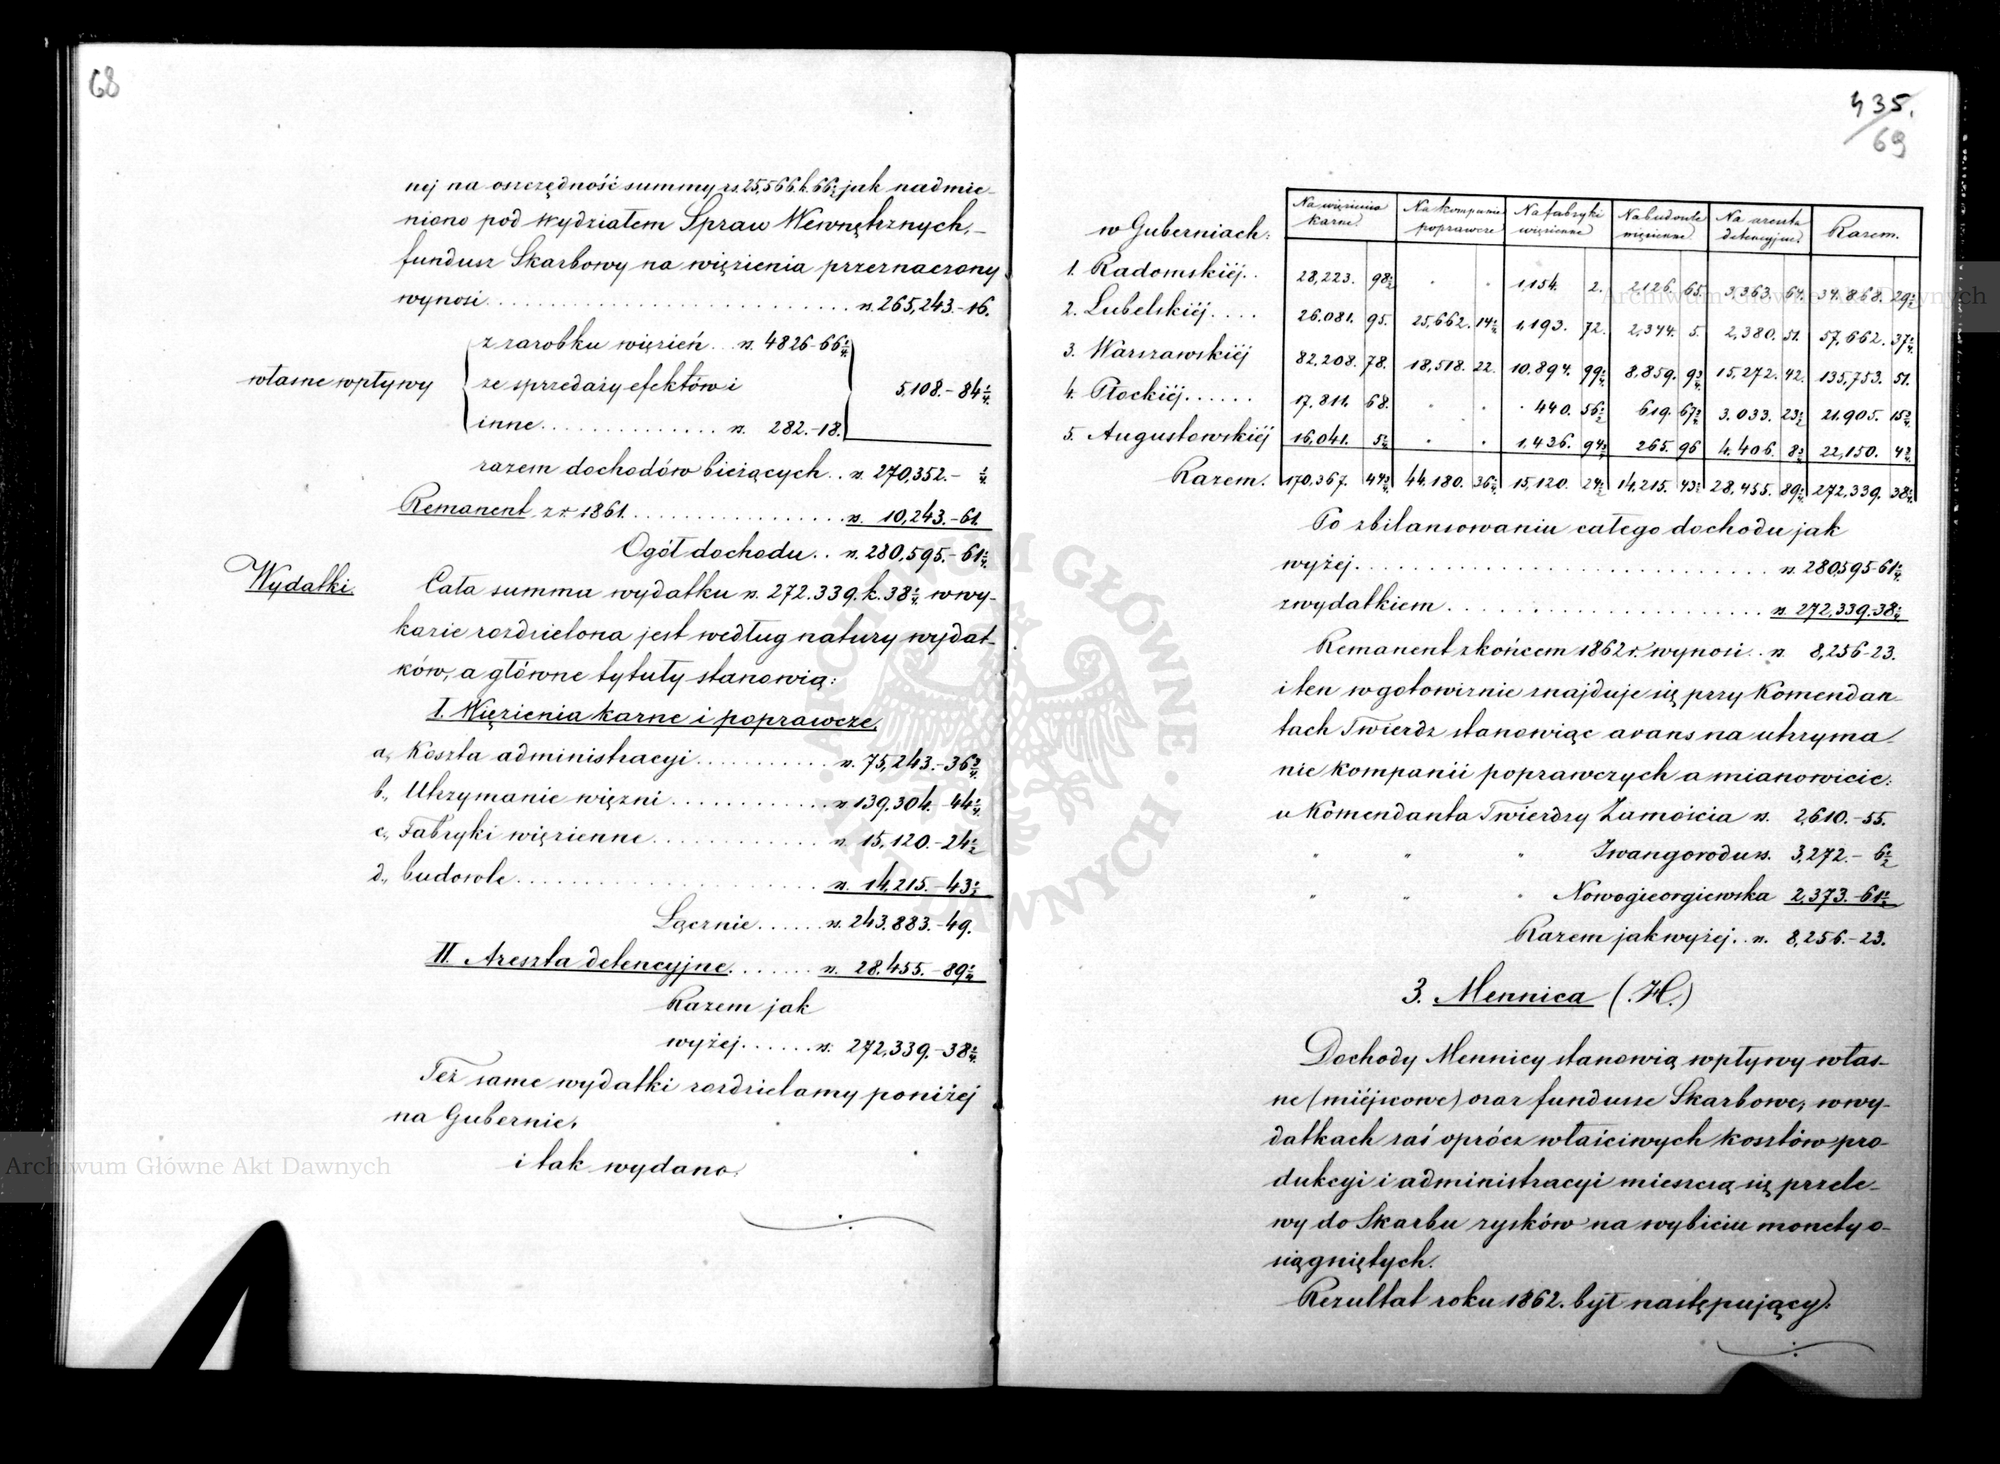 68
nej na oszczędność summy rs. 25,566 k. 66½ jak nadmie-
niono pod Wydziałem Spraw Wewnętrznych,
fundusz Skarbowy na więzienia przeznaczony
wynosi rs. 265,243.-16.
własne wpływy
z zarobku więzień rs. 4826-66¼
ze sprzedaży efektów i
inne rs. 282.-18.
5,108.-84¼
razem dochodów bieżących rs. 270,352.-¼
Remanent z r. 1861 rs. 10,243.-61.
Ogół dochodu rs. 280,595.-61¼
Wydatki. Cała summa wydatku rs. 272.339. k. 38¼ w wy-
kazie rozdzielona jest według natury wydat-
ków, a główne tytuły stanowią:
I. Więzienia karne i poprawcze.
a, Koszta administracyi rs. 75,243.-36¾
b, Utrzymanie więzni rs. 139.304.-44¼
c, Fabryki więzienne rs. 15,120.-24½
d, budowle rs. 14,215.-43½
Łącznie rs. 243.883.-49.
II. Areszta detencyjne rs. 28.455.-89¼
Razem jak
wyżej rs. 272,339.-38¼
Też same wydatki rozdzielamy poniżej
na Gubernie,
i tak wydano.
435.
69
w Guberniach: Na więzienia karne Na kompanie poprawcze Na fabryki więzienne Na budowle więzienne Na areszta detencyjne Razem.
1. Radomskiéj 28,223. 98½ 1,154. 2. 2,126. 65. 3,363. 64. 34.868. 29½
2. Lubelskiéj 26.081. 95. 25,662. 14¼ 1,193. 72. 2,344. 5. 2,380. 51. 57,662. 37¼
3. Warszawskiéj 82,208. 78. 18,518. 22. 10,894. 99¼ 8.859. 9¾ 15,272. 42. 135,753. 51.
4. Płockiéj 17.811. 68. 440. 56½ 619. 67½ 3.033. 23½ 21,905. 15½
5. Augustowskiéj 16,041. 5¼ 1,436. 94½ 265. 96 4.406. 8¾ 22,150. 4½
Razem. 170,367. 44¾ 44,180. 36¼ 15,120. 24½ 14,215. 43½ 28,455. 89¼ 272,339. 38¼
Po zbilansowaniu całego dochodu jak
wyżej rs. 280,595-61¼
z wydatkiem rs. 272,339.38¼
Remanent z końcem 1862 r. wynosi rs. 8,256-23.
i ten w gotowiznie znajduje się przy Komendan-
tach Twierdz stanowiąc avans na utrzyma-
nie kompanii poprawczych a mianowicie:
u Komendanta Twierdzy Zamościa rs. 2,610.-55.
" " " Iwangorodu rs. 3,272.-6½
" " " Nowogieorgiewska 2,373.-61½
Razem jak wyżej rs. 8,256.-23.
3. Mennica (.H.)
Dochody Mennicy stanowią wpływy włas-
ne (miéjscowe) oraz fundusze Skarbowe, w wy-
datkach zaś oprócz właściwych kosztów pro-
dukcyi i administracyi mieszczą się przele-
wy do Skarbu zysków na wybiciu monety o-
siągniętych.
Rezultat roku 1862. był następujący:
Archiwum Główne Akt Dawnych
Archiwum Główne Akt Dawnych
ARCHIWUM GŁÓWNE AKT DAWNYCH